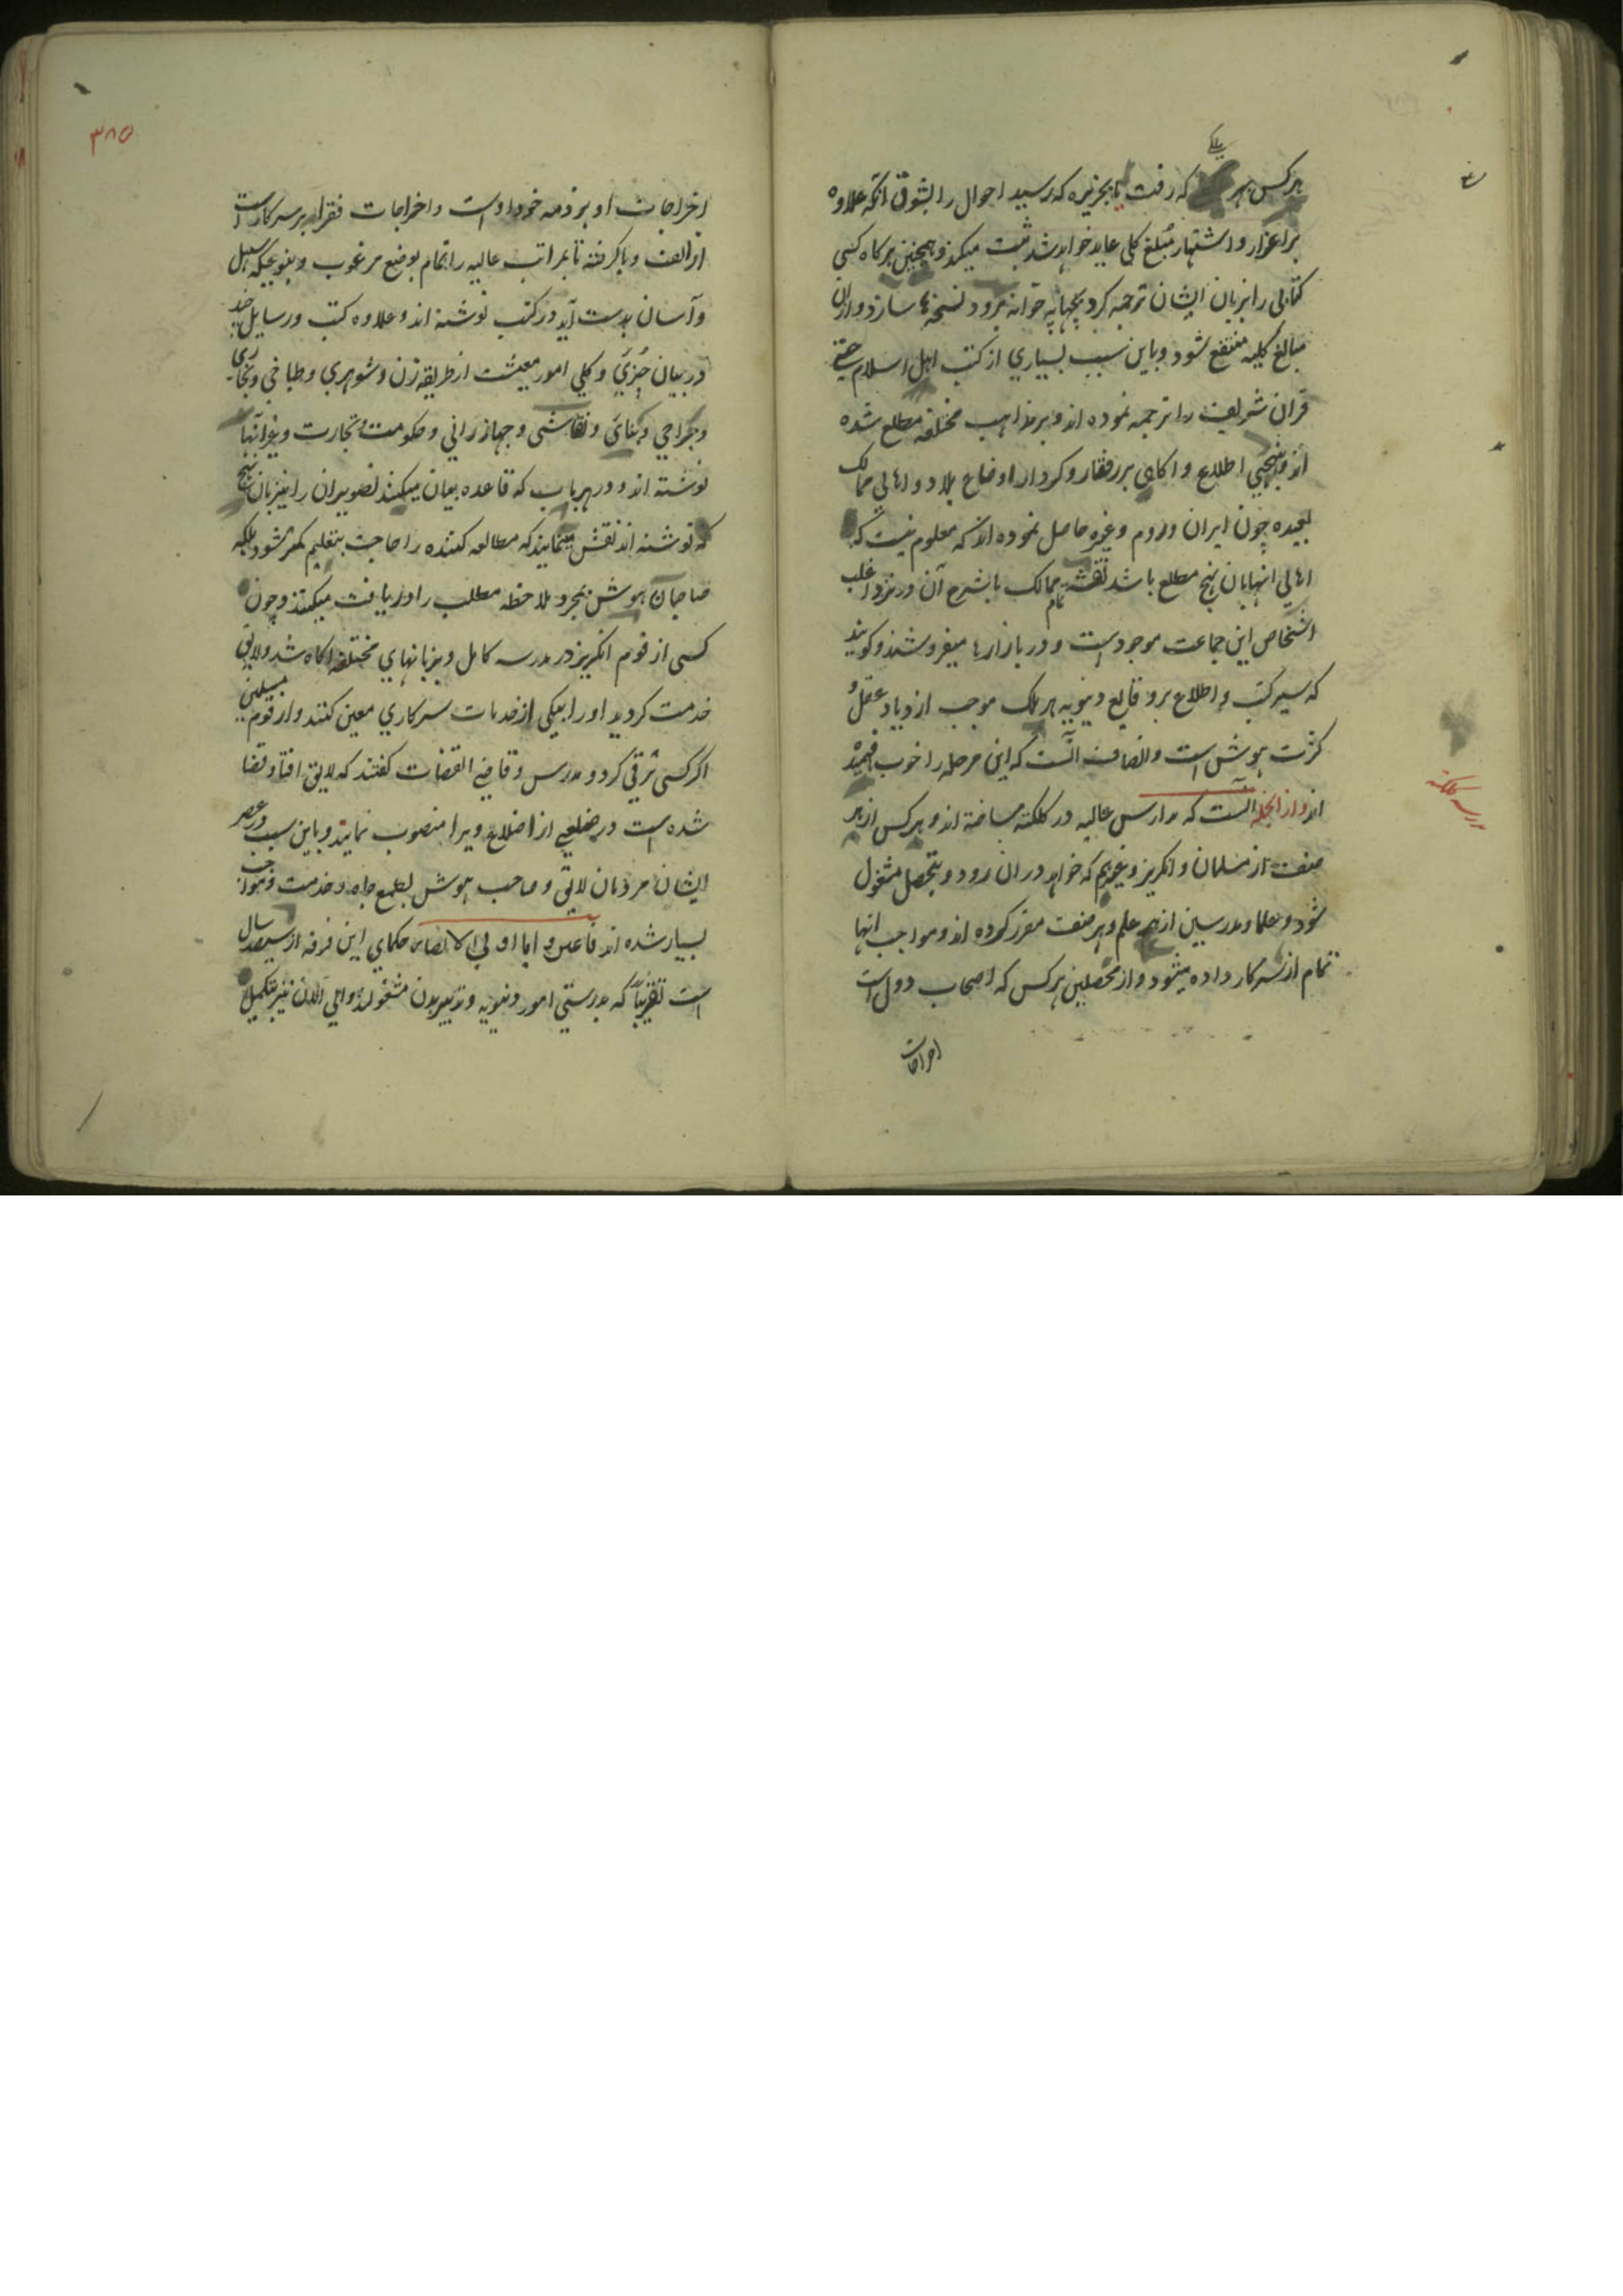 بلکی
هرکس بهر که رفت یا بجزیره که رسید احوال را بشوق آنکه علاوه
بر اعزاز و اشتهار مبلغ کلی عاید خواهد شد ثبت میکند و همچنین هرکاه کسی
کتابی را بزبان ایشان ترجمه کرد بچهاپه خوانه برود نسخه ها سازد و ازان
مبالغ کلیه منتفع شود و باین سبب بسیاري از کتب اهل اسلام حتی
قران شریف را ترجمه نموده اند و بر مذاهب مختلفه مطلع شده
اند و بنهجی اطلاع و اکاهی بر رفتار و کردار و اوضاع بلاد و اهالي ممالک
بعیده چون ایران و روم و غیره حاصل نموده اند که معلوم نیست که
اهالي انها بان نهج مطلع باشد نقشه تمام ممالک با شرح آن در نزد اغلب
اشخاص این جماعت موجود است و در بازارها میفروشند و کویند
که سیر کتب و اطلاع بر وقایع دنیویه هر ملک موجب ازدیاد عقل و
کثرت هوش است و انصاف آنست که این مرحله را خوب فهمیده
اند و از انجمله آنست که مدارس عالیه در کلکته ساخته اند و هرکس از هر
صنف از مسلمان و انکریز و غیرهم که خواهد در ان رود و بتحصیل مشغول
شود و علما و مدرسین از هر علم و هر صنف مقرر کرده اند و مواجب انها
تمام از سرکار داده میشود و از محصلین هرکس که اصحاب دول است
اخراجات
مدرسه کلکته
٣٨٥
اخراجات او بر ذمه خود اوست و اخراجات فقرا بر سرکار است
از الف و با کرفته تا بمراتب عالیه را تمام بوضع مرغوب و بنوعیکه سهل
و آسان بدست آید در کتب نوشته اند و علاوه کتب و رسایل چند
در بیان جزئي و کلي امور معیشت از طریقه زن و شوهري و طباخي و نجاري
و جراحي و بنائي و نقاشی و جهازراني و حکومت و تجارت و غیر آنها
نوشته اند و در هر باب که قاعده بیان میکنند تصویر ان را نیز بان نهج
که نوشته اند نقش مینمایند که مطالعه کننده را حاجت بتعلیم کمتر شود بلکه
صاحبان هوش بمجرد ملاحظه مطلب را دریافت میکنند و چون
کسی از قوم انکریز در مدرسه کامل و بزبانهاي مختلفه اکاه شد و لایق
خدمت کردید او را بیکی از خدمات سرکاري معین کنند و از قوم مسلمین
اکر کسی ترقي کرد و مدرس و قاضي القضات کفتند که لایق افتا و قضا
شده است در ضلعي از اضلاع ویرا منصوب نمایند و باین سبب در عصر
ایشان مردمان لایق و صاحب هوش بطمع جاه و خدمت و مواجب
بسیار شده اند فاعتبروا یا اولي الابصار حکماي این فرقه از سیصد سال
است تقریباً که بدرستي امور دنیویه و تدبیر بدن مشغولند و الي الان نیز بتکمیل